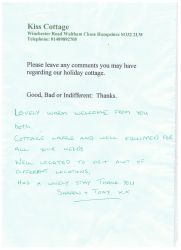 Kiss Cottage
Winchester Road Waltham Chase Hampshire SO32 2LW
Telephone: 01489892708
Please leave any comments you may have
regarding our holiday cottage.
Good, Bad or Indifferent: Thanks.
LOVELY WARM WELCOME FROM YOU
BOTH.
COTTAGE WARM AND WELL EQUIPPED FOR
ALL YOUR NEEDS
WELL LOCATED TO VISIT A LOT OF
DIFFERENT LOCATIONS.
HAD A LOVELY STAY THANK YOU
SHARON + TONY XX